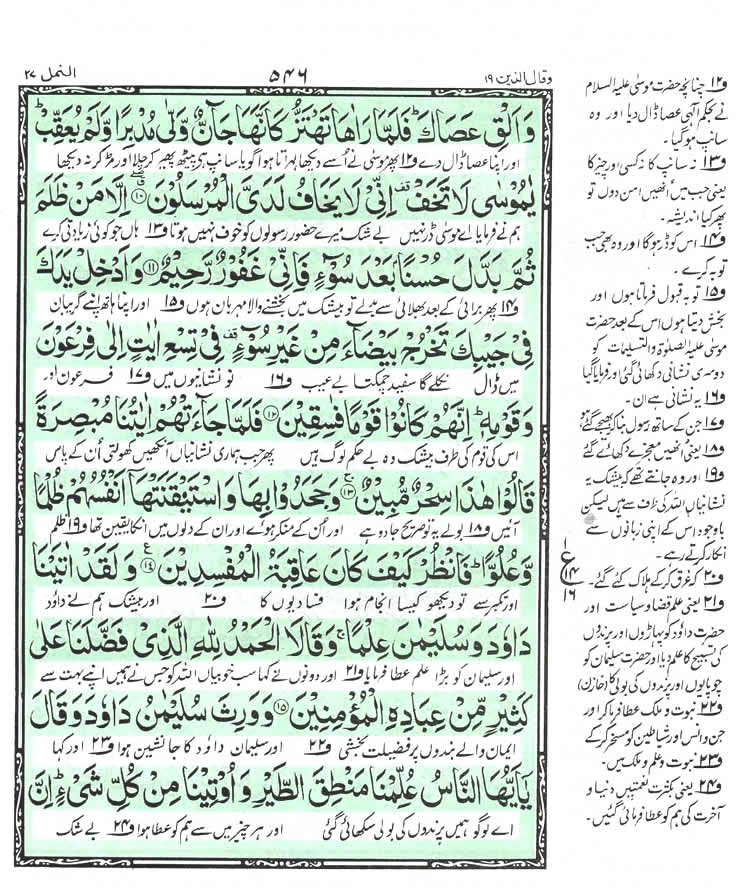 وقال الذین ١٩
٥٤٦
النمل ٢٧
وَاَلْقِ عَصَاكَ ؕ فَلَمَّا رَاٰهَا تَهْتَزُّ كَاَنَّهَا جَآنٌّ وَّلّٰی مُدْبِرًا وَّلَمْ یُعَقِّبْ ؕ
اور اپنا عصا ڈال دے ف١٢ پھر موسیٰ نے اُسے دیکھا لہراتا ہوا گویا سانپ ہے پیٹھ پھیر کر چلا اور مڑ کر نہ دیکھا
یٰمُوْسٰی لَا تَخَفْ ۫ اِنِّیْ لَا یَخَافُ لَدَیَّ الْمُرْسَلُوْنَ ﴿١٠﴾ اِلَّا مَنْ ظَلَمَ
ہم نے فرمایا اے موسیٰ ڈر نہیں بے شک میرے حضور رسولوں کو خوف نہیں ہوتا ف١٣ ہاں جو کوئی زیادتی کرے
ثُمَّ بَدَّلَ حُسْنًۢا بَعْدَ سُوْٓءٍ فَاِنِّیْ غَفُوْرٌ رَّحِیْمٌ ﴿١١﴾ وَاَدْخِلْ یَدَكَ
ف١٤ پھر برائی کے بعد بھلائی سے بدلے تو بیشک میں بخشنے والا مہربان ہوں ف١٥ اور اپنا ہاتھ اپنے گریبان
فِیْ جَیْبِكَ تَخْرُجْ بَیْضَآءَ مِنْ غَیْرِ سُوْٓءٍ ۫ فِیْ تِسْعِ اٰیٰتٍ اِلٰی فِرْعَوْنَ
میں ڈال نکلے گا سفید چمکتا بے عیب ف١٦ نو نشانیوں میں ف١٧ فرعون اور
وَقَوْمِهٖ ؕ اِنَّهُمْ كَانُوْا قَوْمًا فٰسِقِیْنَ ﴿١٢﴾ فَلَمَّا جَآءَتْهُمْ اٰیٰتُنَا مُبْصِرَةً
اس کی قوم کی طرف بیشک وہ بے حکم لوگ ہیں پھر جب ہماری نشانیاں آنکھیں کھولتی اُن کے پاس
قَالُوْا هٰذَا سِحْرٌ مُّبِیْنٌ ﴿١٣﴾ وَجَحَدُوْا بِهَا وَاسْتَیْقَنَتْهَاۤ اَنْفُسُهُمْ ظُلْمًا
آئیں ف١٨ بولے یہ تو صریح جادو ہے اور اُن کے منکر ہوئے اور ان کے دلوں میں انکا یقین تھا ف١٩ ظلم
وَّعُلُوًّا ؕ فَانْظُرْ كَیْفَ كَانَ عَاقِبَةُ الْمُفْسِدِیْنَ ﴿١٤﴾ وَلَقَدْ اٰتَیْنَا
اور تکبر سے تو دیکھو کیسا انجام ہوا فسادیوں کا ف٢٠ اور بیشک ہم نے داؤد
دَاوٗدَ وَسُلَیْمٰنَ عِلْمًا ۚ وَقَالَا الْحَمْدُ لِلّٰهِ الَّذِیْ فَضَّلَنَا عَلٰی
اور سلیمان کو بڑا علم عطا فرمایا ف٢١ اور دونوں نے کہا سب خوبیاں اللہ کو جس نے ہمیں اپنے بہت سے
كَثِیْرٍ مِّنْ عِبَادِهِ الْمُؤْمِنِیْنَ ﴿١٥﴾ وَوَرِثَ سُلَیْمٰنُ دَاوٗدَ وَقَالَ
ایمان والے بندوں پر فضیلت بخشی ف٢٢ اور سلیمان داؤد کا جانشین ہوا ف٢٣ اور کہا
یٰۤاَیُّهَا النَّاسُ عُلِّمْنَا مَنْطِقَ الطَّیْرِ وَاُوْتِیْنَا مِنْ كُلِّ شَیْءٍ ؕ اِنَّ
اے لوگو ہمیں پرندوں کی بولی سکھائی گئی اور ہر چیز میں سے ہم کو عطا ہوا ف٢٤ بے شک
ف١٢ چنانچہ حضرت موسیٰ علیہ السلام
نے بحکم آلہی عصا ڈال دیا اور وہ
سانپ ہوگیا۔
ف١٣ نہ سانپ کا نہ کسی اور چیز کا
یعنی جب میں انھیں امن دوں تو
پھر کیا اندیشہ۔
ف١٤ اس کو ڈر ہوگا اور وہ بھی جب
توبہ کرے۔
ف١٥ توبہ قبول فرماتا ہوں اور
بخش دیتا ہوں اس کے بعد حضرت
موسیٰ علیہ الصلوٰۃ والتسلیمات کو
دوسری نشانی دکھائی گئی اور فرمایا گیا
ف١٦ یہ نشانی ہے ان۔
ف١٧ جن کے ساتھ رسول بنا کر بھیجے گئے ہو
ف١٨ یعنی انھیں معجزے دکھائے گئے
ف١٩ اور وہ جانتے تھے کہ بیشک یہ
نشانیاں اللہ کی طرف سے ہیں لیکن
باوجود اس کے اپنی زبانوں سے
انکار کرتے رہے۔
ف٢٠ کہ غرق کر کے ہلاک کئے گئے۔
ف٢١ یعنی علم قضا و سیاست اور
حضرت داؤد کو پہاڑوں اور پرندوں
کی تسبیح کا علم دیا اور حضرت سلیمان کو
چوپایوں اور پرندوں کی بولی کا (خازن)
ف٢٢ نبوت و ملک عطا فرما کر اور
جن و انس اور شیاطین کو مسخر کر کے
ف٢٣ نبوت و علم و ملک میں۔
ف٢٤ یعنی بکثرت نعمتیں دنیا و
آخرت کی ہم کو عطا فرمائی گئیں۔
ع
١٤
١٦